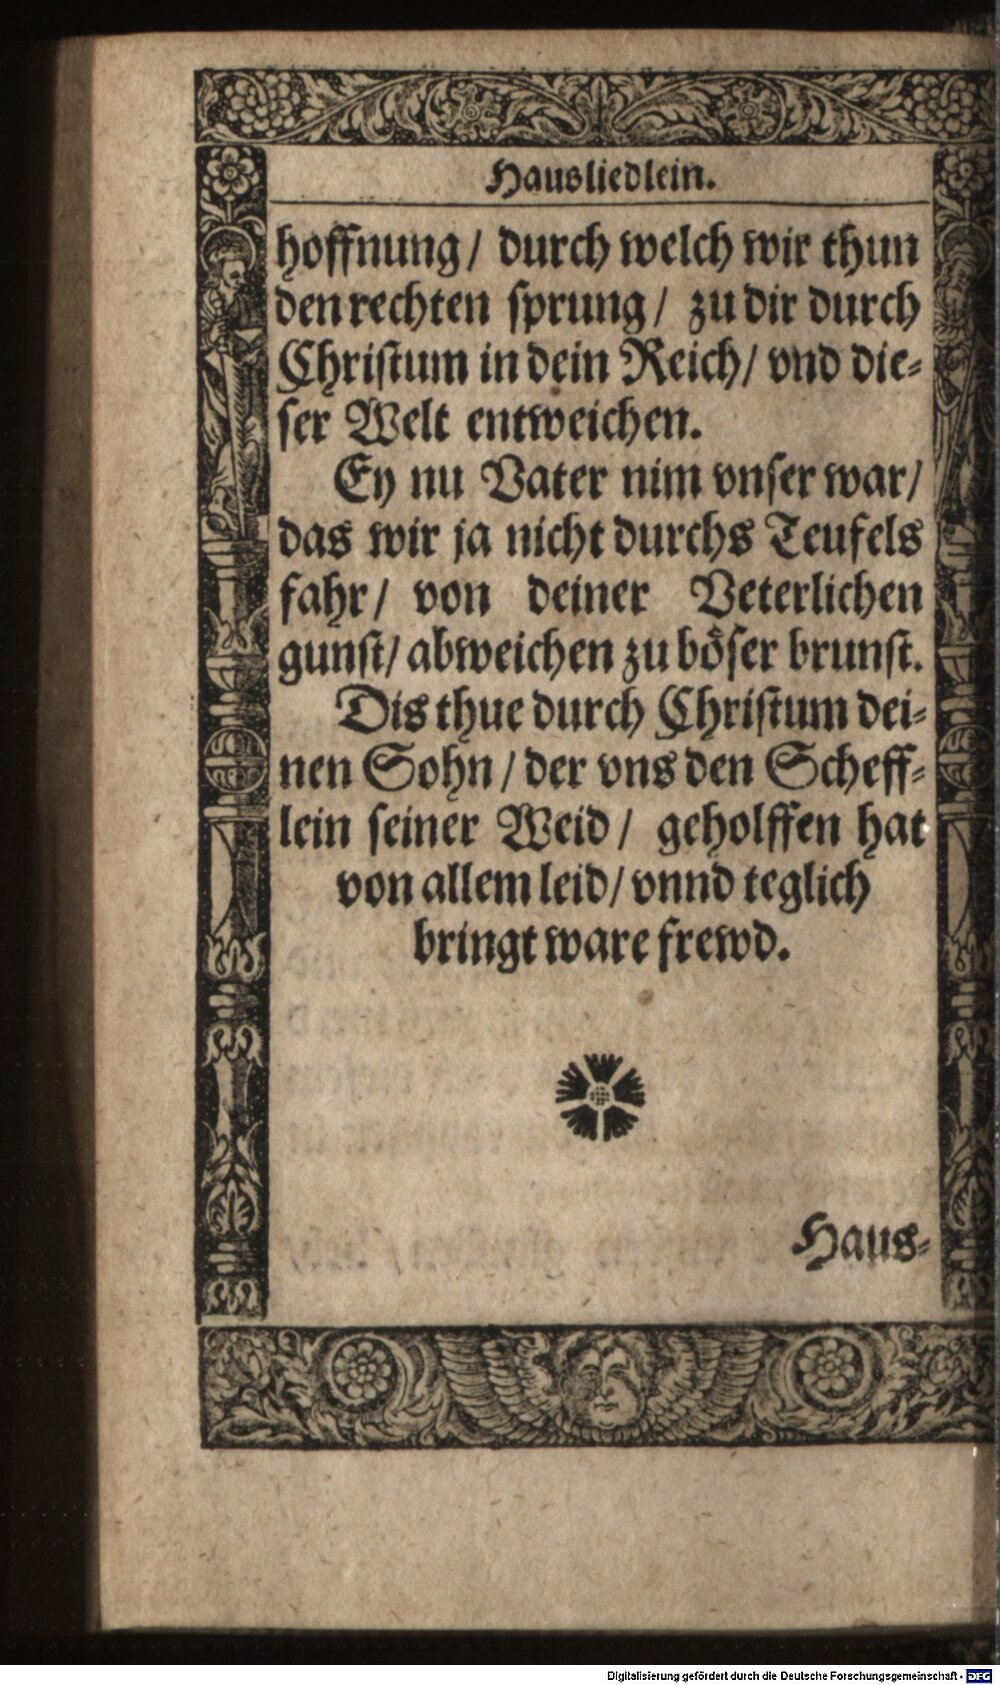 Hausliedlein.
hoffnung/ durch welch wir thun
den rechten sprung/ zu dir durch
Christum in dein Reich/ vnd die-
ser Welt entweichen.
Ey nu Vater nim vnser war/
das wir ja nicht durchs Teufels
fahr/ von deiner Veterlichen
gunst/ abweichen zu böser brunst.
Dis thue durch Christum dei-
nen Sohn/ der vns den Scheff-
lein seiner Weid/ geholffen hat
von allem leid/ vnnd teglich
bringt ware frewd.
Haus-
Digitalisierung gefördert durch die Deutsche Forschungsgemeinschaft - DFG